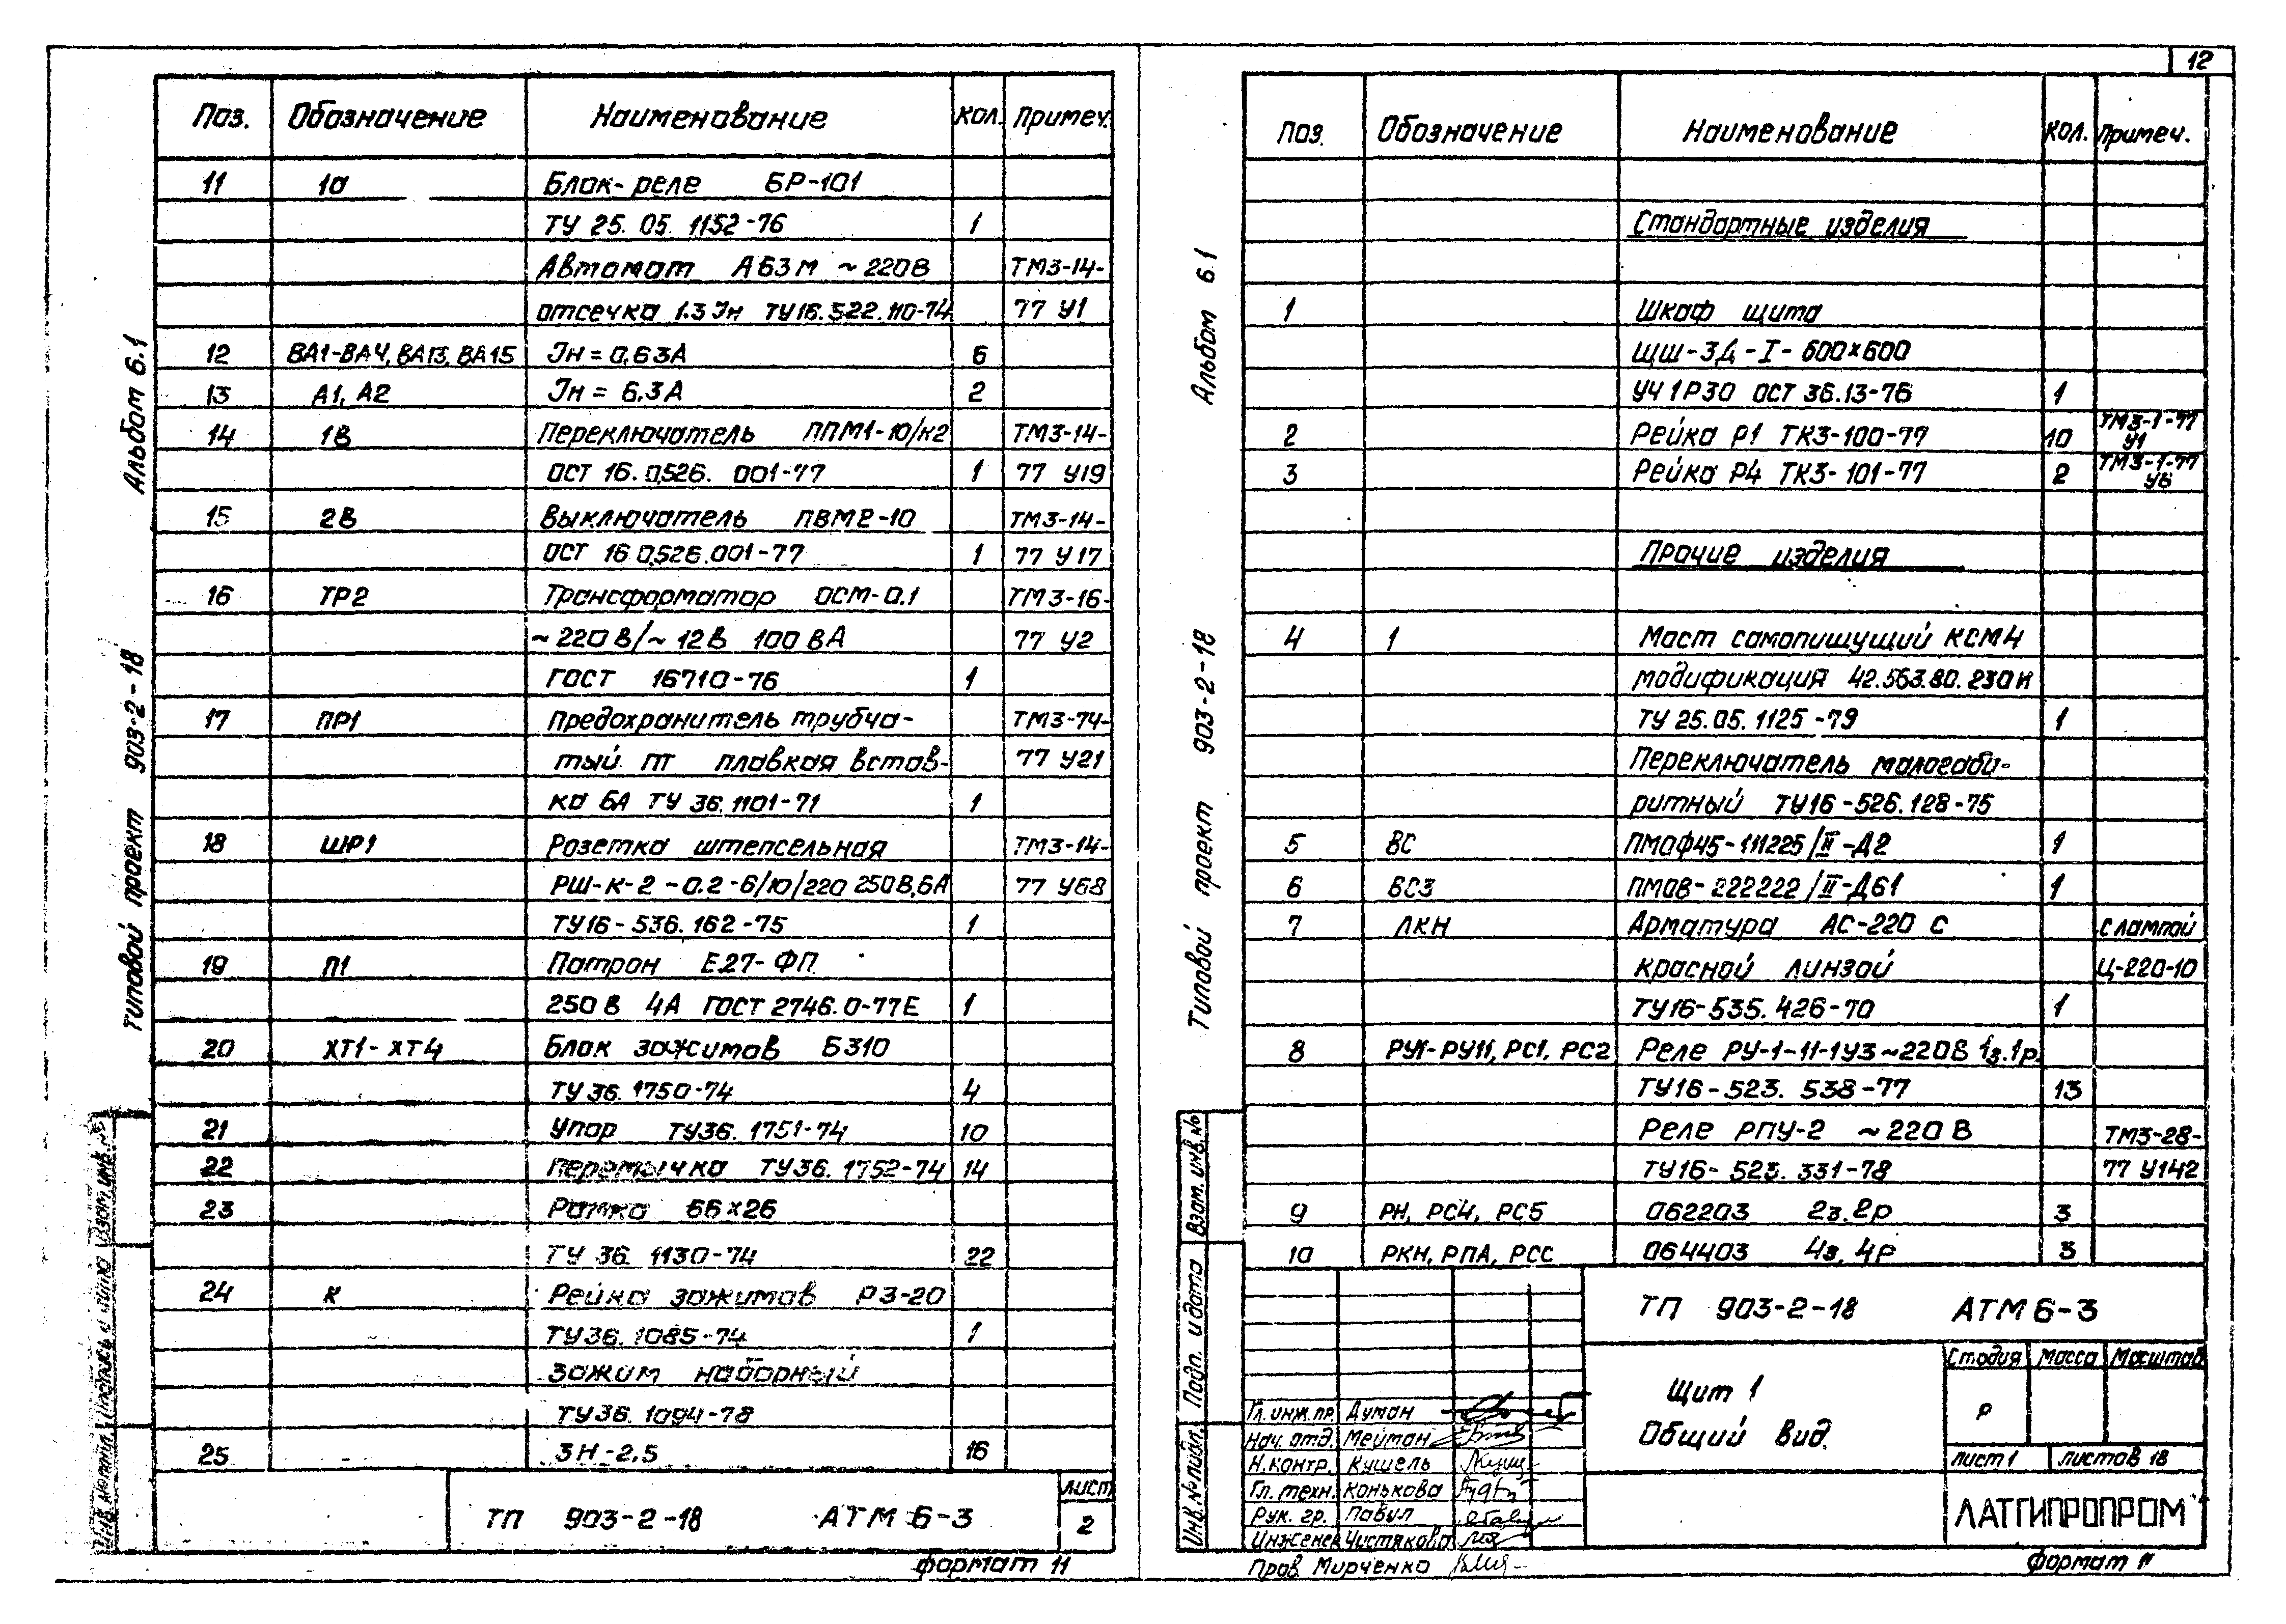 12
Поз. Обозначение Наименование Кол. Примеч.
11 1а Блок-реле БР-101
ТУ 25.05.1152-76 1
Автомат А63М ~220В ТМ3-14-
отсечка 1.3 Iн ТУ16.522.110-74 77 У1
12 ВА1-ВА4, ВА13, ВА15 Iн = 0,63А 6
13 А1, А2 Iн = 6.3А 2
14 1В Переключатель ППМ1-10/н2 ТМ3-14-
ОСТ 16.0.526.001-77 1 77 У19
15 2В Выключатель ПВМ2-10 ТМ3-14-
ОСТ 16 0.526.001-77 1 77 У17
16 ТР2 Трансформатор ОСМ-0.1 ТМ3-16-
~220В/~12В 100ВА 77 У2
ГОСТ 16710-76 1
17 ПР1 Предохранитель трубча- ТМ3-74-
тый ПТ плавкая встав- 77 У21
ка 6А ТУ 36.1101-71 1
18 ШР1 Розетка штепсельная ТМ3-14-
РШ-К-2-0.2-6/10/220 250В,6А 77 У68
ТУ16-536.162-75 1
19 П1 Патрон Е27-ФП
250В 4А ГОСТ 2746.0-77Е 1
20 ХТ1-ХТ4 Блок зажимов Б310
ТУ 36.1750-74 4
21 Упор ТУ36.1751-74 10
22 Перемычка ТУ36.1752-74 14
23 Рамка 66х26
ТУ 36.1130-74 22
24 К Рейка зажимов РЗ-20
ТУ36.1085-74 1
Зажим наборный
ТУ36.1094-78
25 ЗН-2.5 16
ТП 903-2-18 АТМ6-3 Лист
2
Формат 11
Альбом 6.1
Типовой проект 903-2-18
Поз. Обозначение Наименование Кол. Примеч.
Стандартные изделия
1 Шкаф щита
ЩШ-ЗД-I-600х600
УЧ1Р30 ОСТ 36.13-76 1
2 Рейка Р1 ТК3-100-77 10 ТМ3-1-77
У1
3 Рейка Р4 ТК3-101-77 2 ТМ3-1-77
У6
Прочие изделия
4 1 Мост самопишущий КСМ4
модификация 42.563.80.230И
ТУ 25.05.1125-79 1
Переключатель малогаба-
ритный ТУ16-526.128-75
5 ВС ПМОФ45-111225/II-Д2 1
6 БСЗ ПМОВ-222222/II-Д61 1
7 ЛКН Арматура АС-220 с с лампой
красной линзой Ц-220-10
ТУ16-535.426-70 1
8 РУ1-РУ11, РС1, РС2 Реле РУ-1-11-1У3~220В 1з.1р.
ТУ16-523.538-77 13
Реле РПУ-2 ~220В ТМ3-28-
ТУ16-523.331-78 77 У142
9 РН, РС4, РС5 062203 2з.2р 3
10 РКН, РПА, РСС 064403 4з.4р 3
ТП 903-2-18 АТМ6-3
Стадия Масса Масштаб
Щит 1
Общий вид.
Р
Лист 1 Листов 18
ЛАТГИПРОПРОМ
Гл. инж. пр. Думан
Нач. отд. Мейтан
Н. контр. Кушель
Гл. техн. Конькова
Рук. гр. Павул
Инженер Чистякова
Пров. Мирченко
Формат 11
Альбом 6.1
Типовой проект 903-2-18
Взам. инв. №
Подп. и дата
Инв. № подл.